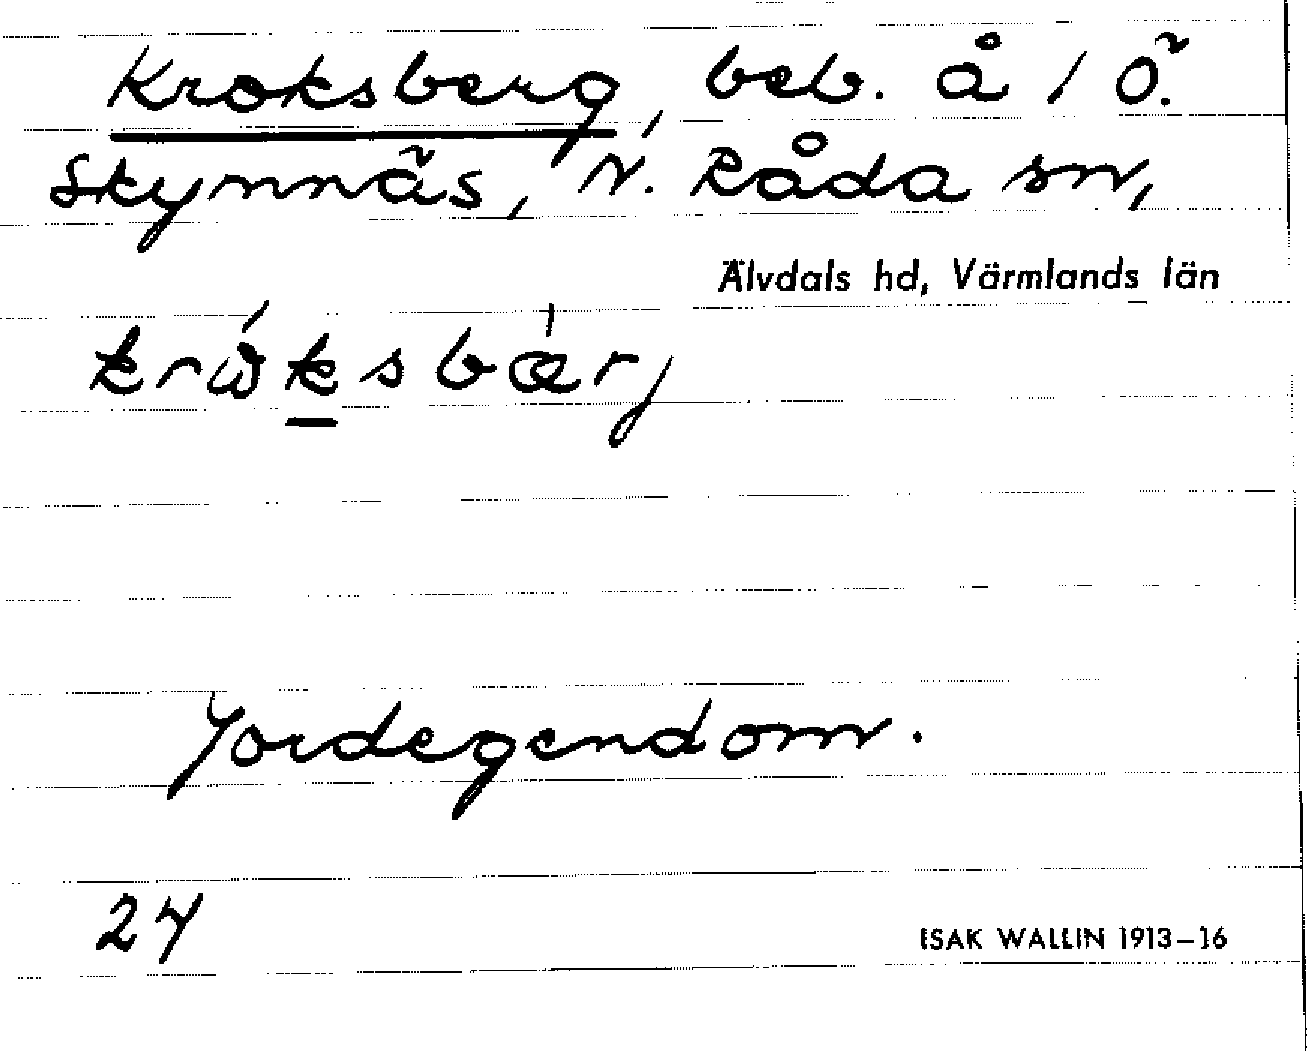 Kroksberg, beb. å 1 Ö.
Skymnäs, N. Råda sn,
Älvdals hd, Värmlands län
Jordegendom.
24
ISAK WALLIN 1913–16